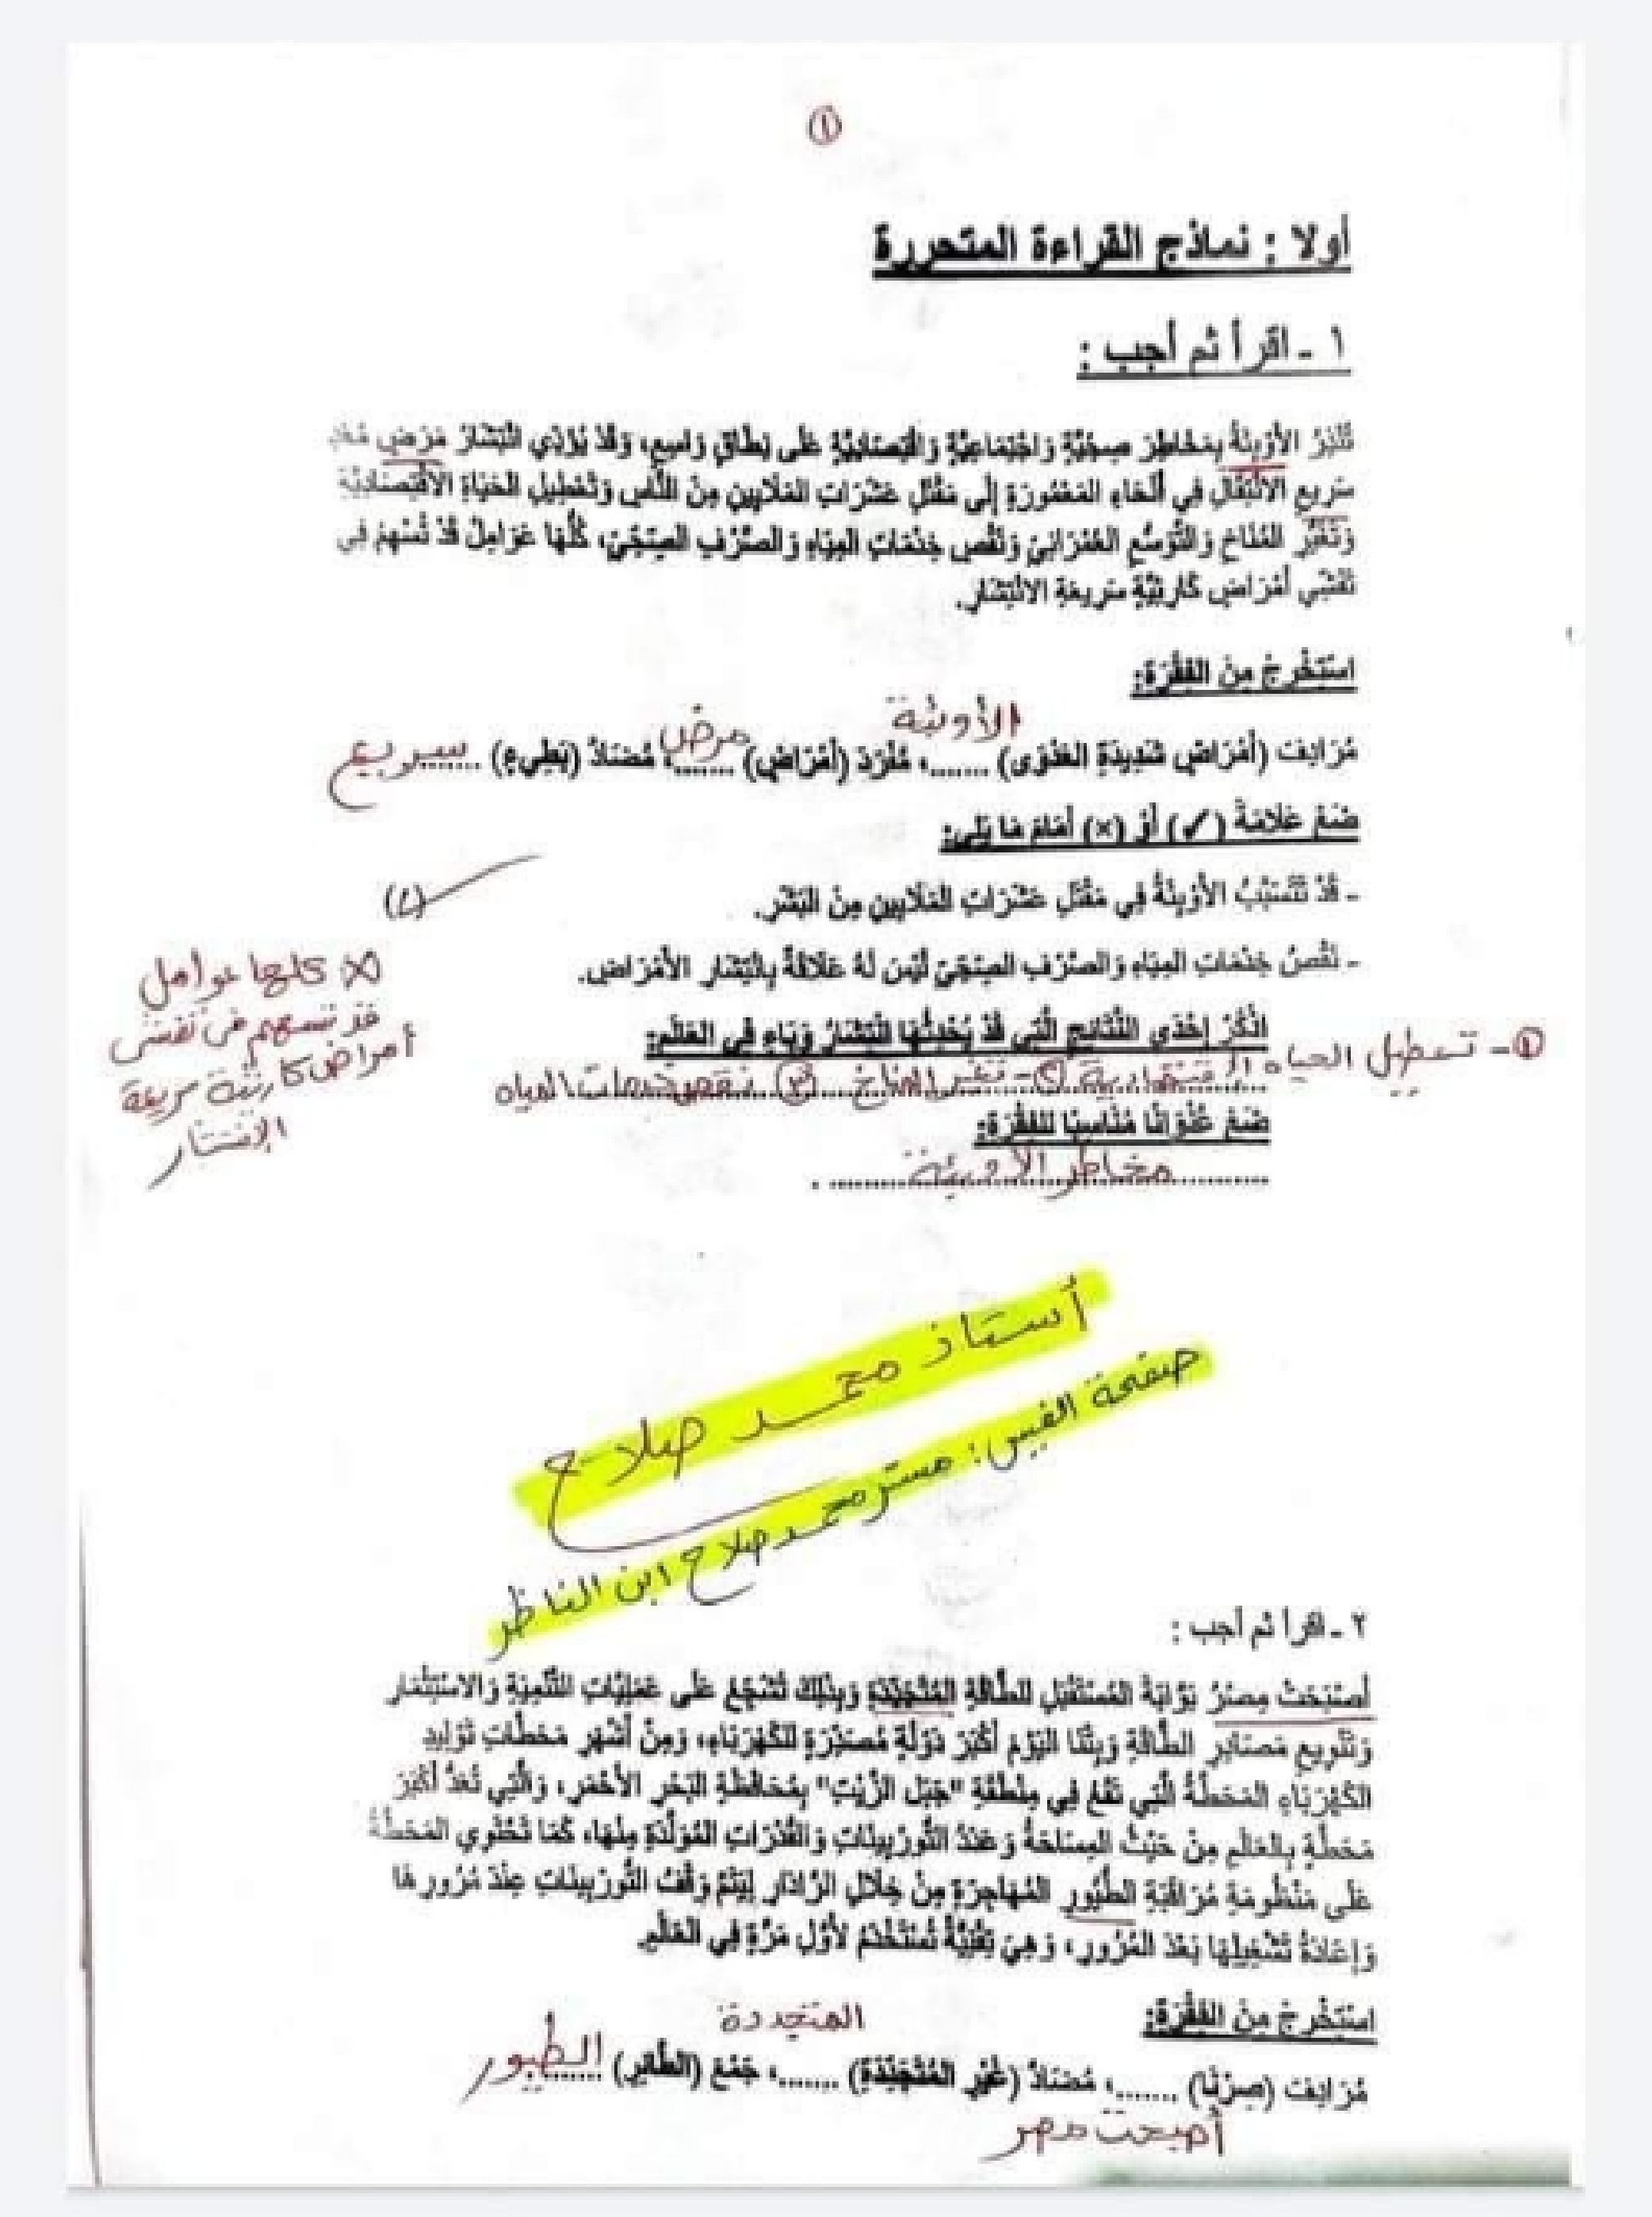 ①
أولا : نماذج القراءة المتحررة
١ - اقرأ ثم أجب :
تُنْذِرُ الأَوْبِئَةُ بِمَخَاطِرَ صِحِّيَّةٍ وَاجْتِمَاعِيَّةٍ وَاقْتِصَادِيَّةٍ عَلَى نِطَاقٍ وَاسِعٍ، وَقَدْ يُؤَدِّي انْتِشَارُ مَرَضٍ مُعْدٍ
سَرِيعِ الانْتِقَالِ فِي أَنْحَاءِ المَعْمُورَةِ إِلَى مَقْتَلِ عَشَرَاتِ المَلَايِينِ مِنَ النَّاسِ وَتَعْطِيلِ الحَيَاةِ الاقْتِصَادِيَّةِ
وَتَغَيُّرِ المُنَاخِ وَالتَّوَسُّعِ العُمْرَانِيِّ وَنَقْصِ خِدْمَاتِ المِيَاهِ وَالصَّرْفِ الصِّحِّيِّ، كُلُّهَا عَوَامِلُ قَدْ تُسْهِمُ فِي
تَفَشِّي أَمْرَاضٍ كَارِثِيَّةٍ سَرِيعَةِ الانْتِشَارِ.
اسْتَخْرِجْ مِنَ الفِقْرَةِ:
الأوبئة
مُرَادِفَ (أَمْرَاضٍ شَدِيدَةِ العَدْوَى) .......، مُفْرَدَ (أَمْرَاضٍ) مرض .......، مُضَادَّ (بَطِيءِ) سريع .......
ضَعْ عَلَامَةَ (✓) أَوْ (×) أَمَامَ مَا يَلِي:
- قَدْ تَتَسَبَّبُ الأَوْبِئَةُ فِي مَقْتَلِ عَشَرَاتِ المَلَايِينِ مِنَ البَشَرِ. (✓)
- نَقْصُ خِدْمَاتِ المِيَاهِ وَالصَّرْفِ الصِّحِّيِّ لَيْسَ لَهُ عَلَاقَةٌ بِانْتِشَارِ الأَمْرَاضِ.
(× كلها عوامل
قد تسهم فى تفشى
أمراض كارثية سريعة
الإنتشار
اذْكُرْ إِحْدَى النَّتَائِجِ الَّتِي قَدْ يُحْدِثُهَا انْتِشَارُ وَبَاءٍ فِي العَالَمِ:
①- تعطيل الحياه الاقتصادية ②- تغير المناخ ③ نقص خدمات المياه
ضَعْ عُنْوَانًا مُنَاسِبًا لِلفِقْرَةِ:
مخاطر الأوبئة
أستاذ محمد صلاح
صفحة الفيس : مستر محمد صلاح ابن الناظر
٢ - اقرأ ثم أجب :
أَصْبَحَتْ مِصْرُ بَوَّابَةَ المُسْتَقْبَلِ لِلطَّاقَةِ المُتَجَدِّدَةِ وَبِذَلِكَ تُشَجِّعُ عَلَى عَمَلِيَّاتِ التَّنْمِيَةِ وَالاسْتِثْمَارِ
وَتَنْوِيعِ مَصَادِرِ الطَّاقَةِ وَبِتْنَا اليَوْمَ أَكْبَرَ دَوْلَةٍ مُصَدِّرَةٍ لِلكَهْرَبَاءِ، وَمِنْ أَشْهَرِ مَحَطَّاتِ تَوْلِيدِ
الكَهْرَبَاءِ المَحَطَّةُ الَّتِي تَقَعُ فِي مِنْطَقَةِ "جَبَلِ الزَّيْتِ" بِمُحَافَظَةِ البَحْرِ الأَحْمَرِ، وَالَّتِي تُعَدُّ أَكْبَرَ
مَحَطَّةٍ بِالعَالَمِ مِنْ حَيْثُ المِسَاحَةُ وَعَدَدُ التُّورْبِينَاتِ وَالقُدْرَاتِ المُوَلَّدَةِ مِنْهَا، كَمَا تَحْتَوِي المَحَطَّةُ
عَلَى مَنْظُومَةِ مُرَاقَبَةِ الطُّيُورِ المُهَاجِرَةِ مِنْ خِلَالِ الرَّادَارِ لِيَتِمَّ وَقْفُ التُّورْبِينَاتِ عِنْدَ مُرُورِهَا
وَإِعَادَةُ تَشْغِيلِهَا بَعْدَ المُرُورِ، وَهِيَ تِقْنِيَّةٌ تُسْتَخْدَمُ لِأَوَّلِ مَرَّةٍ فِي العَالَمِ
اسْتَخْرِجْ مِنَ الفِقْرَةِ:
المتجددة
مُرَادِفَ (صِرْنَا) .......، مُضَادَّ (غَيْرِ المُتَجَدِّدَةِ) .......، جَمْعَ (الطَّائِرِ) الطيور .......
أصبحت مصر